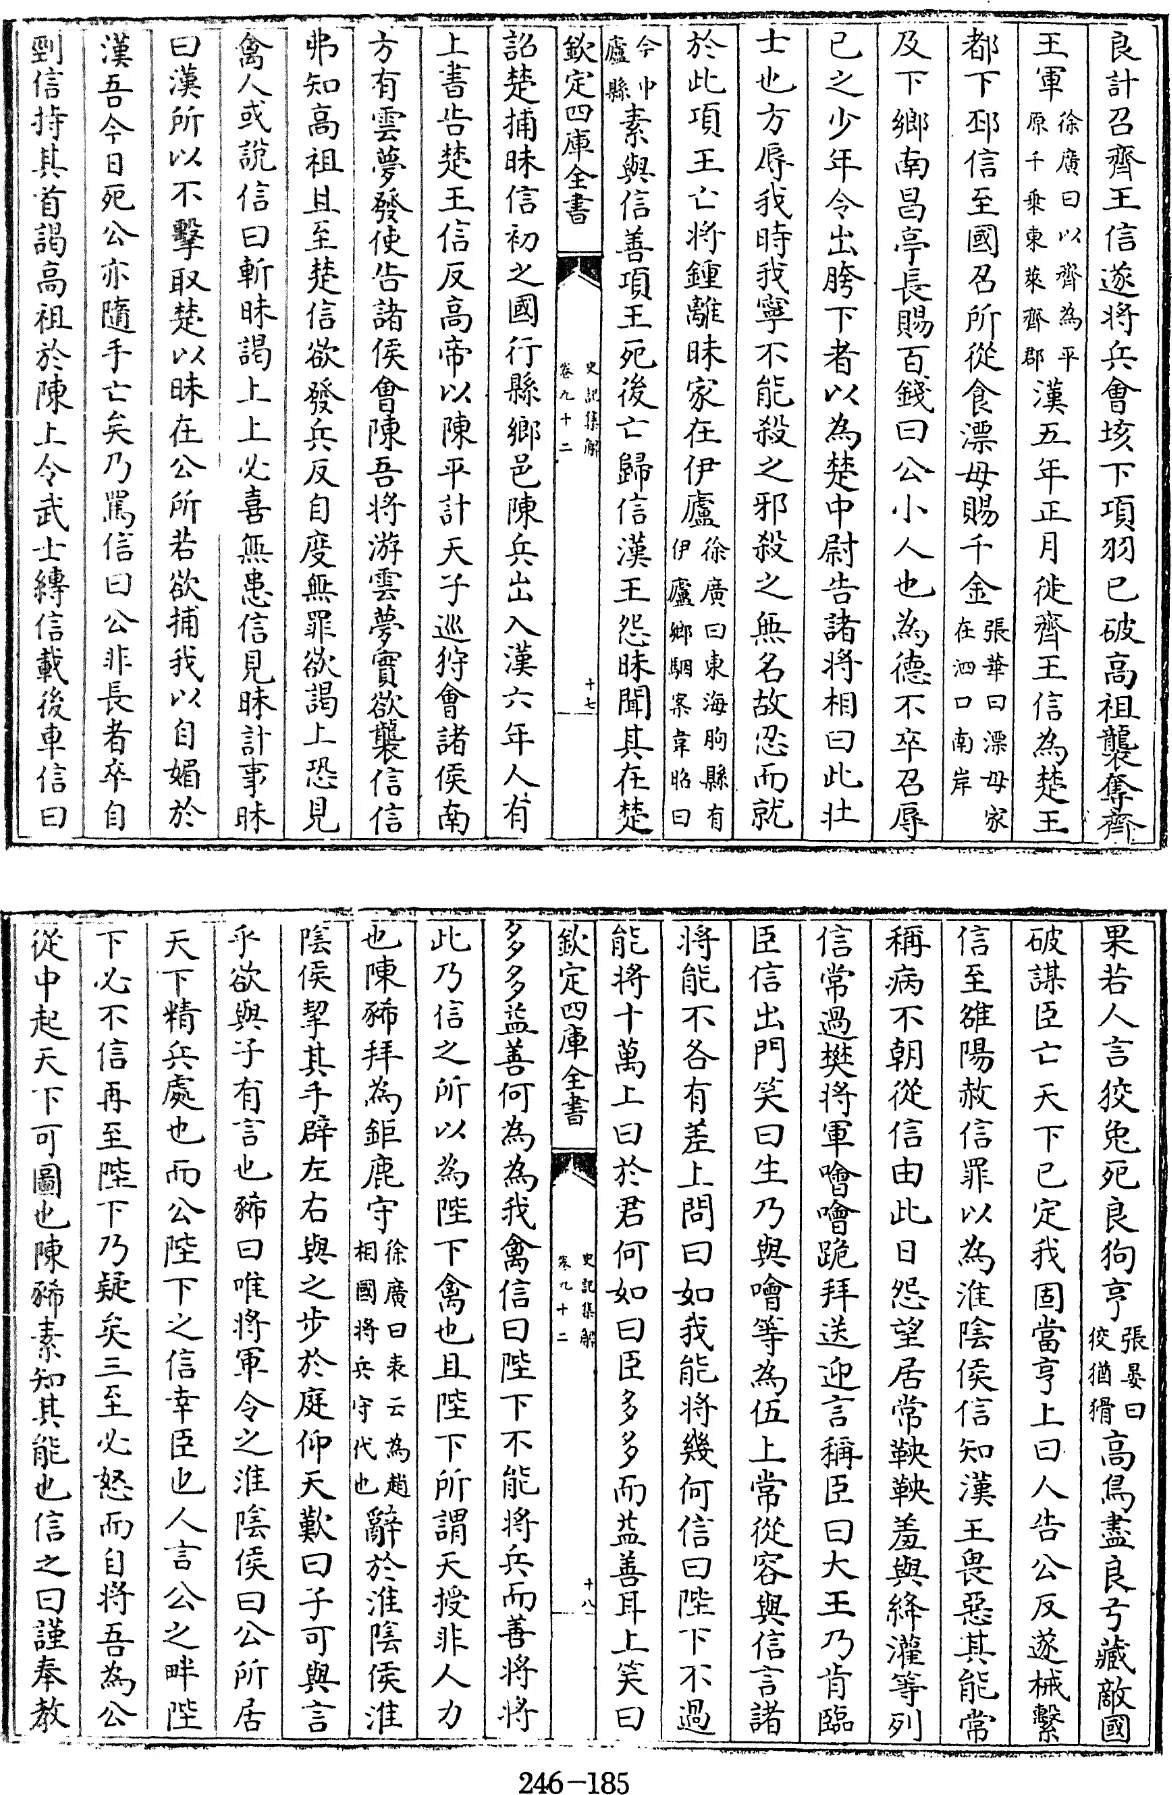 良計召齊王信遂將兵會垓下項羽已破高祖襲奪齊
王軍徐廣曰以齊為平原千乗東萊齊郡漢五年正月徙齊王信為楚王
都下邳信至國召所從食漂母賜千金張華曰漂母家在泗口南岸
及下鄉南昌亭長賜百錢曰公小人也為德不卒召辱
已之少年令出胯下者以為楚中尉告諸將相曰此壮
士也方辱我時我寧不能殺之邪殺之無名故忍而就
於此項王亡將鍾離昧家在伊廬徐廣曰東海朐縣有伊廬鄉駰案韋昭曰
今中廬縣素與信善項王死後亡歸信漢王怨昧聞其在楚
欽定四庫全書 史記集解卷九十二 十七
詔楚捕昧信初之國行縣鄉邑陳兵出入漢六年人有
上書告楚王信反高帝以陳平計天子巡狩會諸侯南
方有雲夢發使告諸侯會陳吾將游雲夢實欲襲信信
弗知高祖且至楚信欲發兵反自度無罪欲謁上恐見
禽人或說信曰斬昧謁上上必喜無患信見昧計事昧
曰漢所以不擊取楚以昧在公所若欲捕我以自媚於
漢吾今日死公亦隨手亡矣乃罵信曰公非長者卒自
剄信持其首謁高祖於陳上令武士縛信載後車信曰
果若人言狡兔死良狗亨張晏曰狡猶猾高鳥盡良弓藏敵國
破謀臣亡天下已定我固當亨上曰人告公反遂械繫
信至雒陽赦信罪以為淮陰侯信知漢王畏惡其能常
稱病不朝從信由此日怨望居常鞅鞅羞與絳灌等列
信常過樊將軍噲噲跪拜送迎言稱臣曰大王乃肯臨
臣信出門笑曰生乃與噲等為伍上常從容與信言諸
將能不各有差上問曰如我能將幾何信曰陛下不過
能將十萬上曰於君何如曰臣多多而益善耳上笑曰
欽定四庫全書 史記集解卷九十二 十八
多多益善何為為我禽信曰陛下不能將兵而善將將
此乃信之所以為陛下禽也且陛下所謂天授非人力
也陳豨拜為鉅鹿守徐廣曰表云為趙相國將兵守代也辭於淮陰侯淮
陰侯挈其手辟左右與之步於庭仰天歎曰子可與言
乎欲與子有言也豨曰唯將軍令之淮陰侯曰公所居
天下精兵處也而公陛下之信幸臣也人言公之畔陛
下必不信再至陛下乃疑矣三至必怒而自將吾為公
從中起天下可圖也陳豨素知其能也信之曰謹奉教
246-185